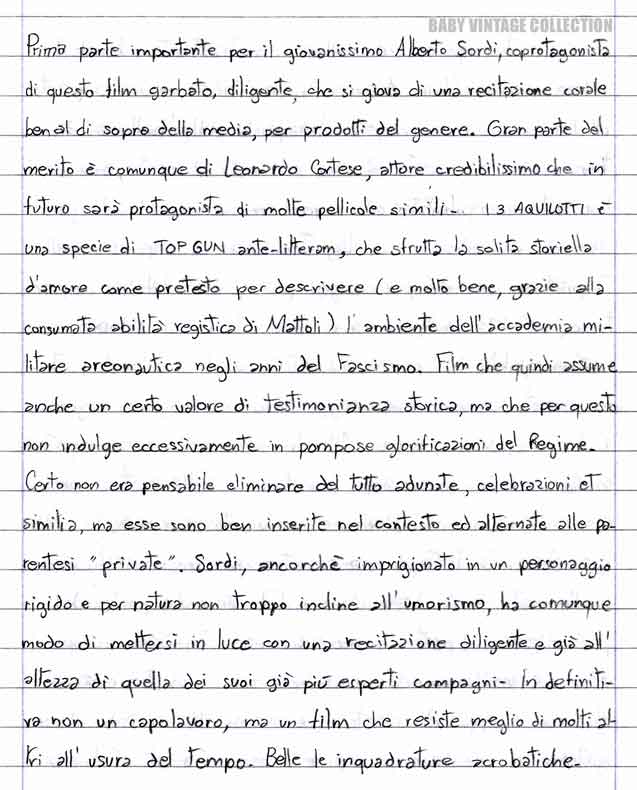 BABY VINTAGE COLLECTION
Prima parte importante per il giovanissimo Alberto Sordi, coprotagonista
di questo film garbato, diligente, che si giova di una recitazione corale
ben al di sopra della media, per prodotti del genere. Gran parte del
merito è comunque di Leonardo Cortese, attore credibilissimo che in
futuro sarà protagonista di molte pellicole simili- I 3 AQUILOTTI è
una specie di TOP GUN ante-litteram, che sfrutta la solita storiella
d'amore come pretesto per descrivere (e molto bene, grazie alla
consumata abilità registica di Mattoli) l'ambiente dell'accademia mi-
litare areonautica negli anni del Fascismo. Film che quindi assume
anche un certo valore di testimonianza storica, ma che per questo
non indulge eccessivamente in pompose glorificazioni del Regime.
Certo non era pensabile eliminare del tutto adunate, celebrazioni et
similia, ma esse sono ben inserite nel contesto ed alternate alle pa-
rentesi "private". Sordi, ancorchè imprigionato in un personaggio
rigido e per natura non troppo incline all'umorismo, ha comunque
modo di mettersi in luce con una recitazione diligente e già all'
altezza di quella dei suoi già più esperti compagni- In definiti-
va non un capolavoro, ma un film che resiste meglio di molti al-
tri all'usura del tempo. Belle le inquadrature acrobatiche.